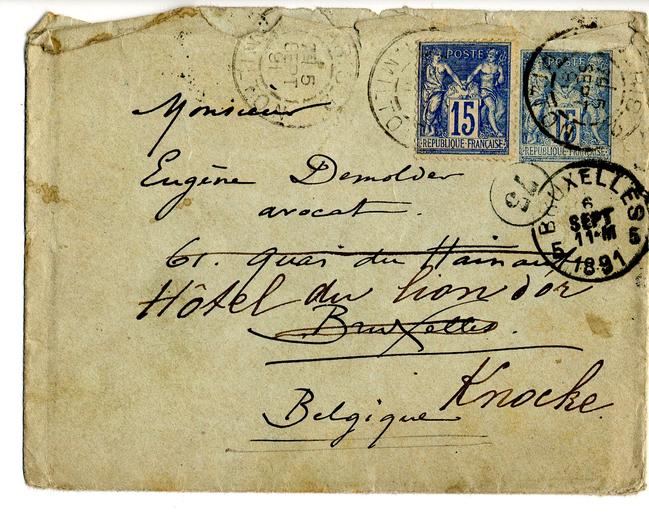 POSTE
15
REPUBLIQUE FRANÇAISE
REPUBLIQUE FRANÇAISE
5
SEPT
75
BRUXELLES
6
SEPT
11-M
5 5
1891
Monsieur
Eugène Demolder
avocat.
61. quai du Hainaut
Hôtel du lion d'or
Bruxelles.
Knocke.
Belgique